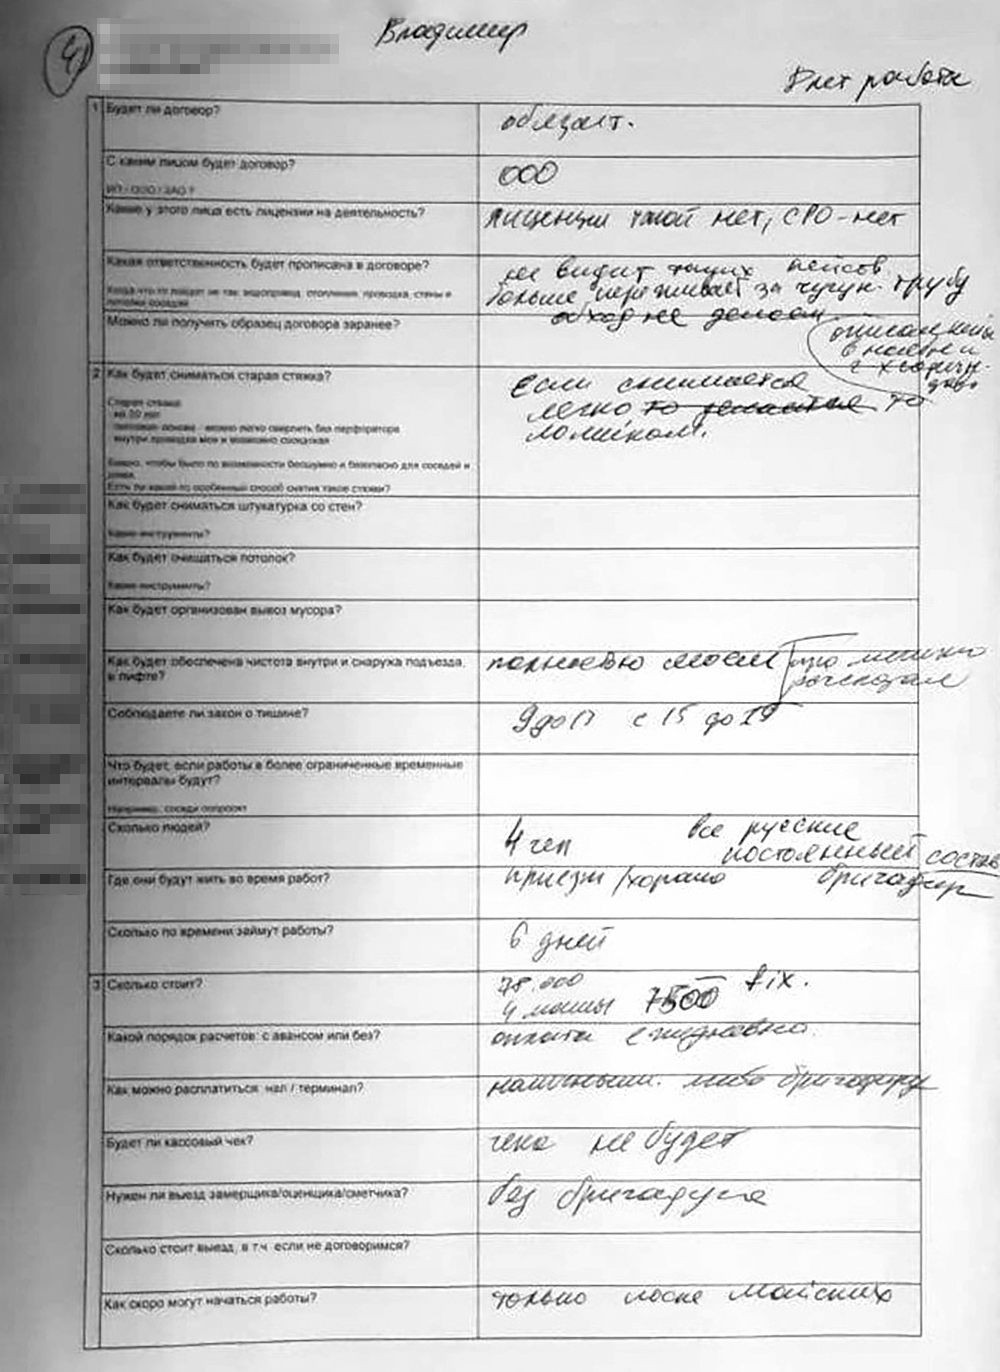 4
Владимир
8 лет работы
1 Будет ли договор?
обязат.
С каким лицом будет договор?
ИП / ООО / ЗАО ?
ООО
Какие у этого лица есть лицензии на деятельность?
лицензии такой нет, СРО - нет
Какая ответственность будет прописана в договоре?
Когда что-то пойдет не так: водопровод, отопление, проводка, стены и потолки соседей
не видит таких
больше переживает за чугун. трубу
Можно ли получить образец договора заранее?
2 Как будет сниматься старая стяжка?
Старая стяжка
если снимается
легко то делается то
ломиком.
Важно, чтобы было по возможности бесшумно и безопасно для соседей и
Есть ли какой-то особенный способ снятия такой стяжки?
Как будет сниматься штукатурка со стен?
Какие инструменты?
Как будет очищаться потолок?
Какие инструменты?
Как будет организован вывоз мусора?
Как будет обеспечена чистота внутри и снаружи подъезда,
в лифте?
полностью моем
про мешки
рассказал
Соблюдаете ли закон о тишине?
с 15 до 19
Что будет, если работы в более ограниченные временные
интервалы будут?
Например, соседи попросят
Сколько людей?
4 чел
все русские
постоянный состав
Где они будут жить во время работ?
бригадир
Сколько по времени займут работы?
6 дней
3 Сколько стоит?
78.000
fix.
4 машины 7500
Какой порядок расчетов: с авансом или без?
оплата ежедневно.
Как можно расплатиться: нал / терминал?
наличными. либо бригадиру
Будет ли кассовый чек?
чека не будет
Нужен ли выезд замерщика/оценщика/сметчика?
без бригадира
Сколько стоит выезд, в т.ч. если не договоримся?
Как скоро могут начаться работы?
только после майских